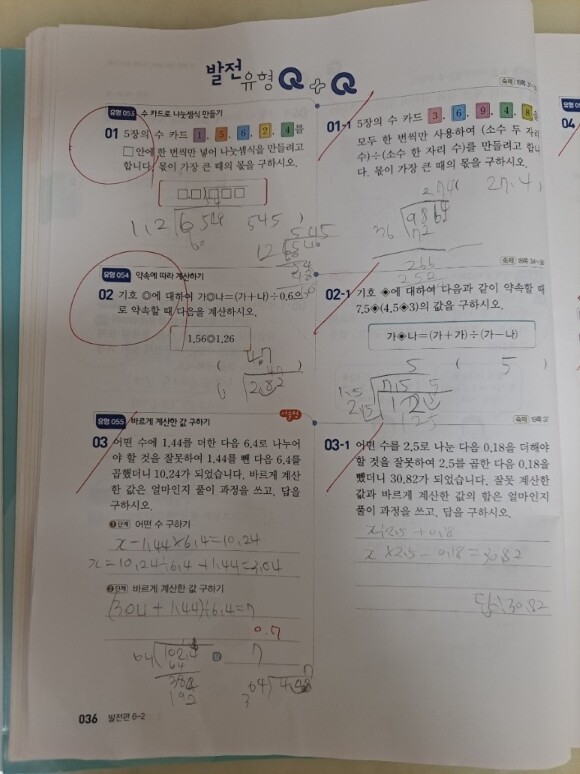 발전 유형 Q+Q
유형 053 수 카드로 나눗셈식 만들기
01 5장의 수 카드 1, 5, 6, 2, 4 를
□ 안에 한 번씩만 넣어 나눗셈식을 만들려고
합니다. 몫이 가장 큰 때의 몫을 구하시오.
□□)□□□
545 )
유형 054 약속에 따라 계산하기
02 기호 ◎에 대하여 가◎나=(가+나)÷0.6으
로 약속할 때 다음을 계산하시오.
1.56◎1.26
( 4.7 )
유형 055 바르게 계산한 값 구하기
서술형
03 어떤 수에 1.44를 더한 다음 6.4로 나누어
야 할 것을 잘못하여 1.44를 뺀 다음 6.4를
곱했더니 10.24가 되었습니다. 바르게 계산
한 값은 얼마인지 풀이 과정을 쓰고, 답을
구하시오.
1단계 어떤 수 구하기
x-1.44×6.4=10.24
x=10.24÷6.4+1.44=3.04
2단계 바르게 계산한 값 구하기
(3.04+1.44)÷6.4=7
0.7
답 7
036 발전편 6-2
01-1 5장의 수 카드 3, 6, 9, 4, 8 을
모두 한 번씩만 사용하여 (소수 두 자리
수)÷(소수 한 자리 수)를 만들려고 합니
다. 몫이 가장 큰 때의 몫을 구하시오.
27.4 )
02-1 기호 ◈에 대하여 다음과 같이 약속할 때
7.5◈(4.5◈3)의 값을 구하시오.
가◈나=(가+나)÷(가-나)
( 5 )
03-1 어떤 수를 2.5로 나눈 다음 0.18을 더해야
할 것을 잘못하여 2.5를 곱한 다음 0.18을
뺐더니 30.82가 되었습니다. 잘못 계산한
값과 바르게 계산한 값의 합은 얼마인지
풀이 과정을 쓰고, 답을 구하시오.
x÷2.5+0.18
x×2.5-0.18=30.82
04